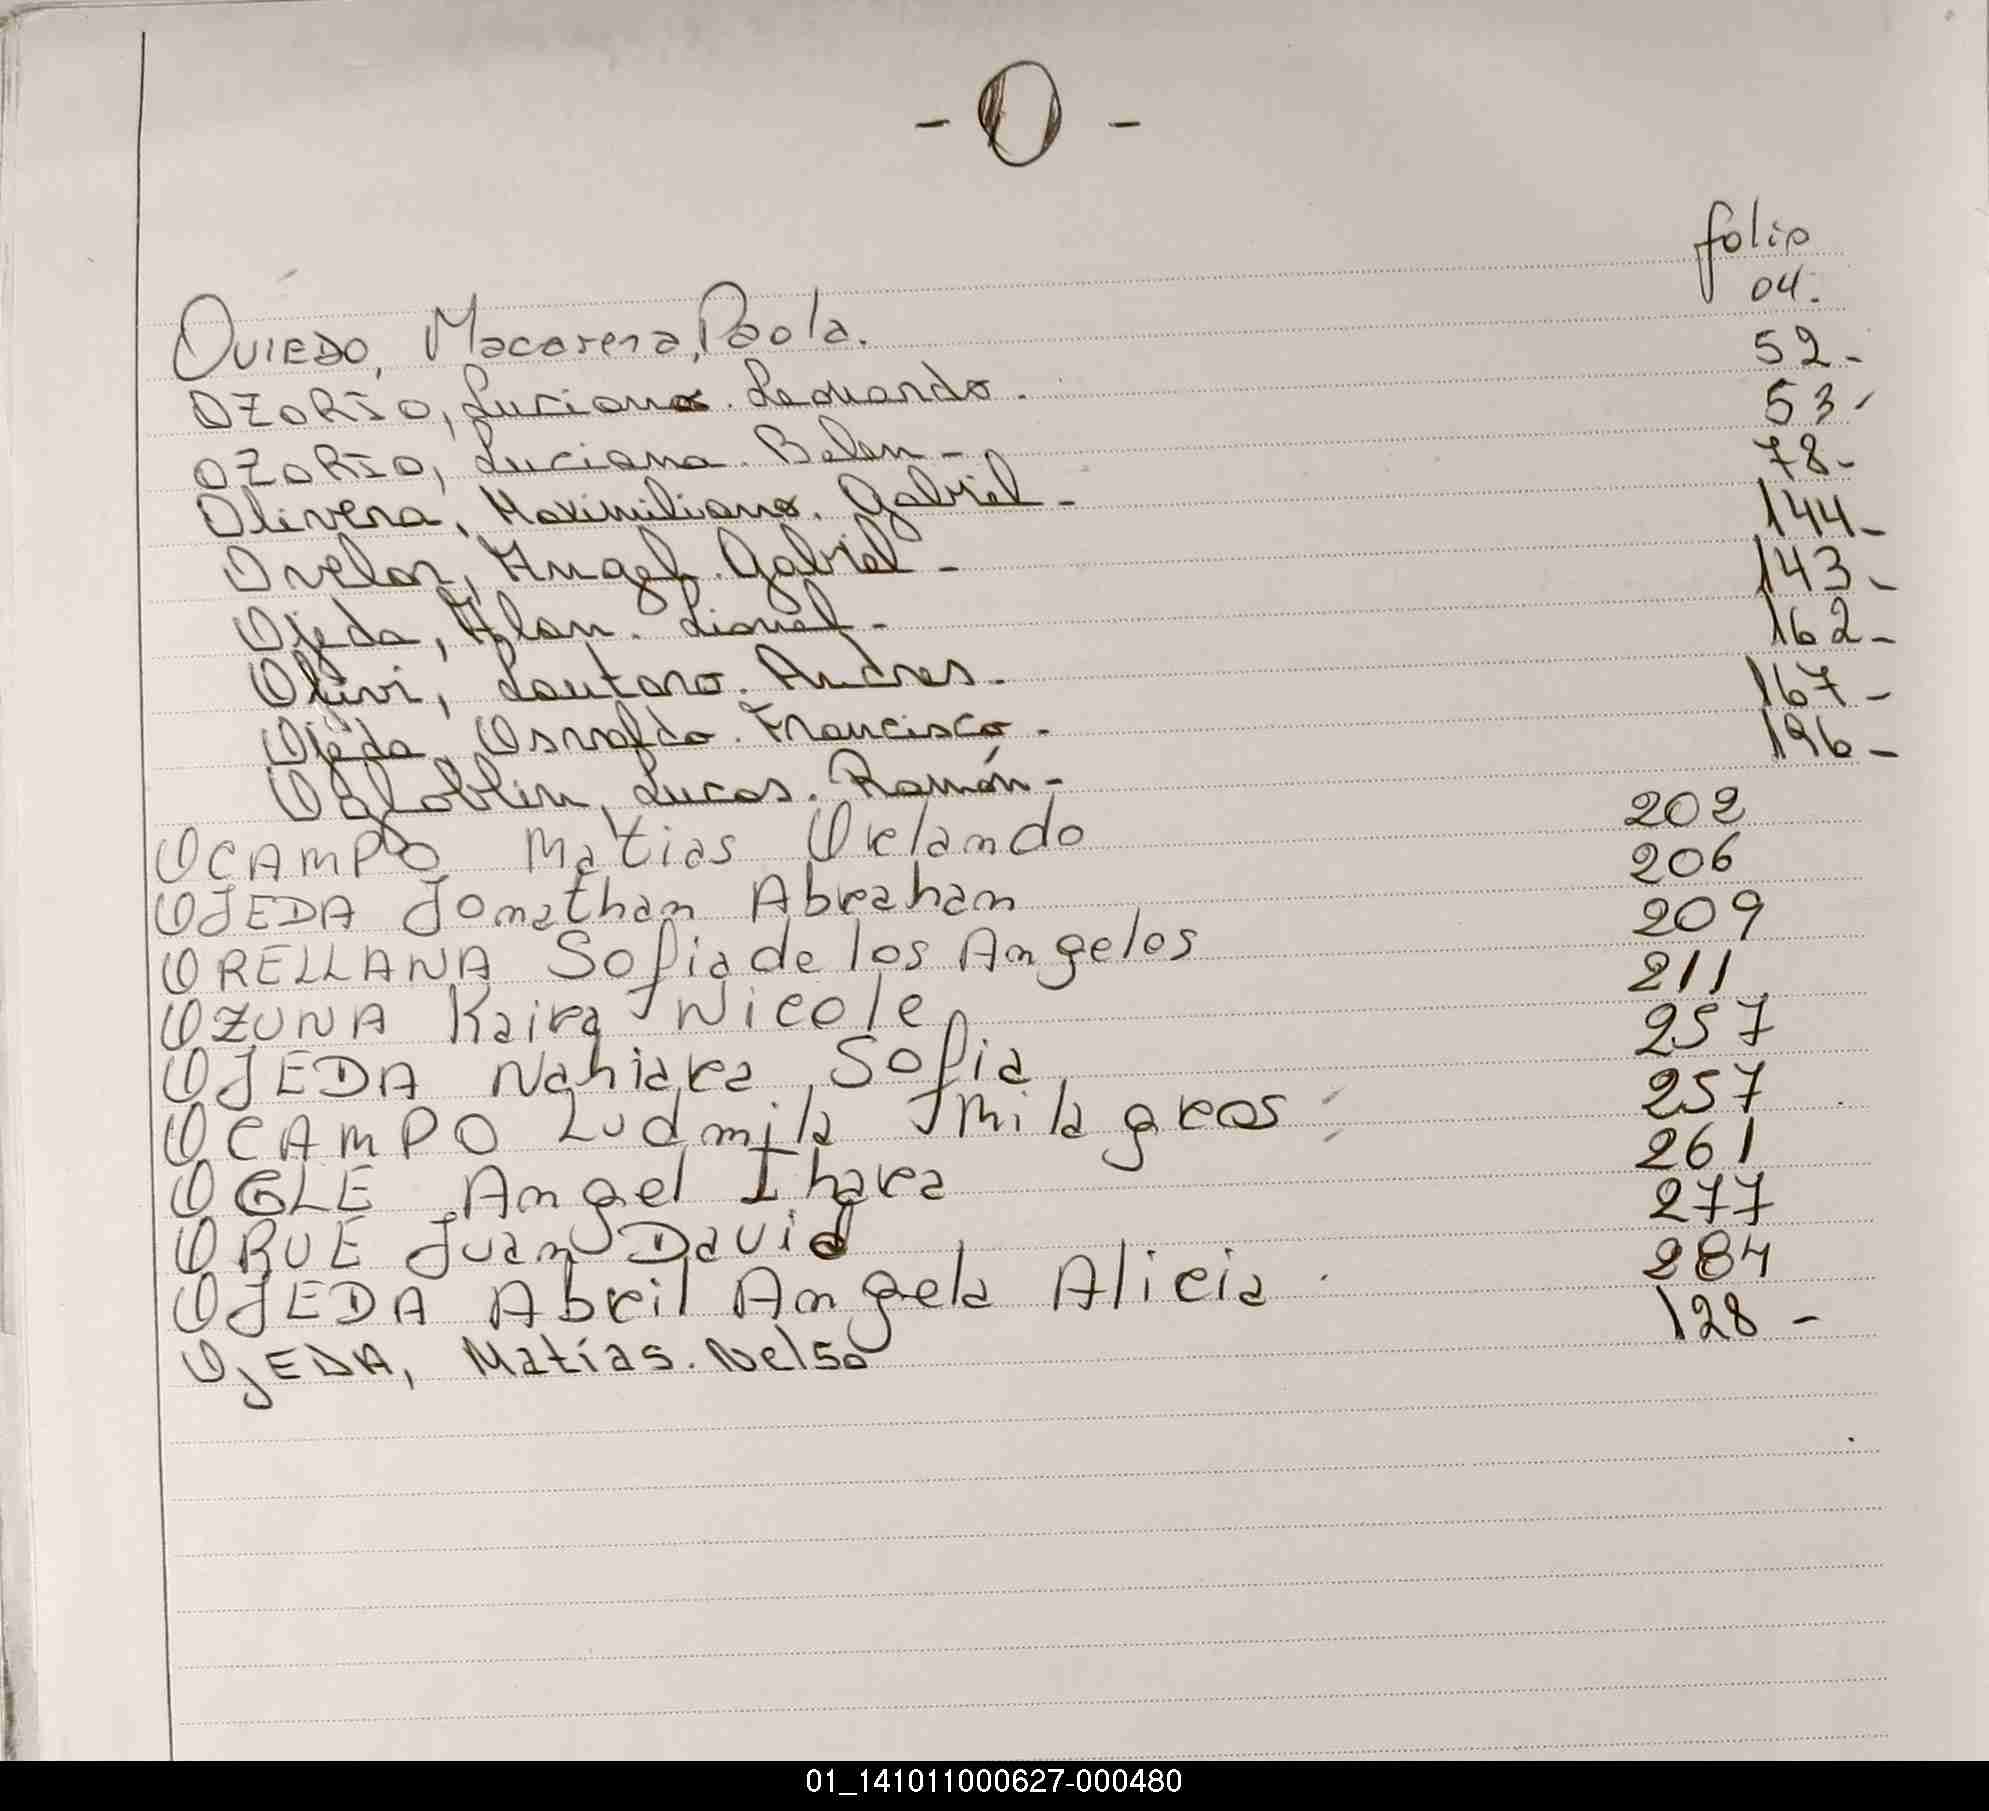 - O -
folio
OVIEDO, Macarena, Paola. 04.
OZORIO, Luciano. Leonardo. 52-
OZORIO, Luciana. Belen - 53-
Olivera, Maximiliano. Gabriel - 78-
Ovelar, Angel. Gabriel - 144-
Ojeda, Alan. Lionel - 143-
Olivi, Lautaro. Andres. 162-
Ojeda, Osvaldo. Francisco. 167-
Lucas. Ramón - 196-
OCAMPO Matias Orlando 202
OJEDA Jonathan Abraham 206
ORELLANA Sofia de los Angeles 209
OZUNA Kaira Nicole 211
OJEDA Nahiara Sofia 257
OCAMPO Ludmila Milagros 257
OGLE Angel Ihara 261
ORUE Juan David 277
OJEDA Abril Angela Alicia 284
OJEDA, Matías. Nelso 128-
01_141011000627-000480